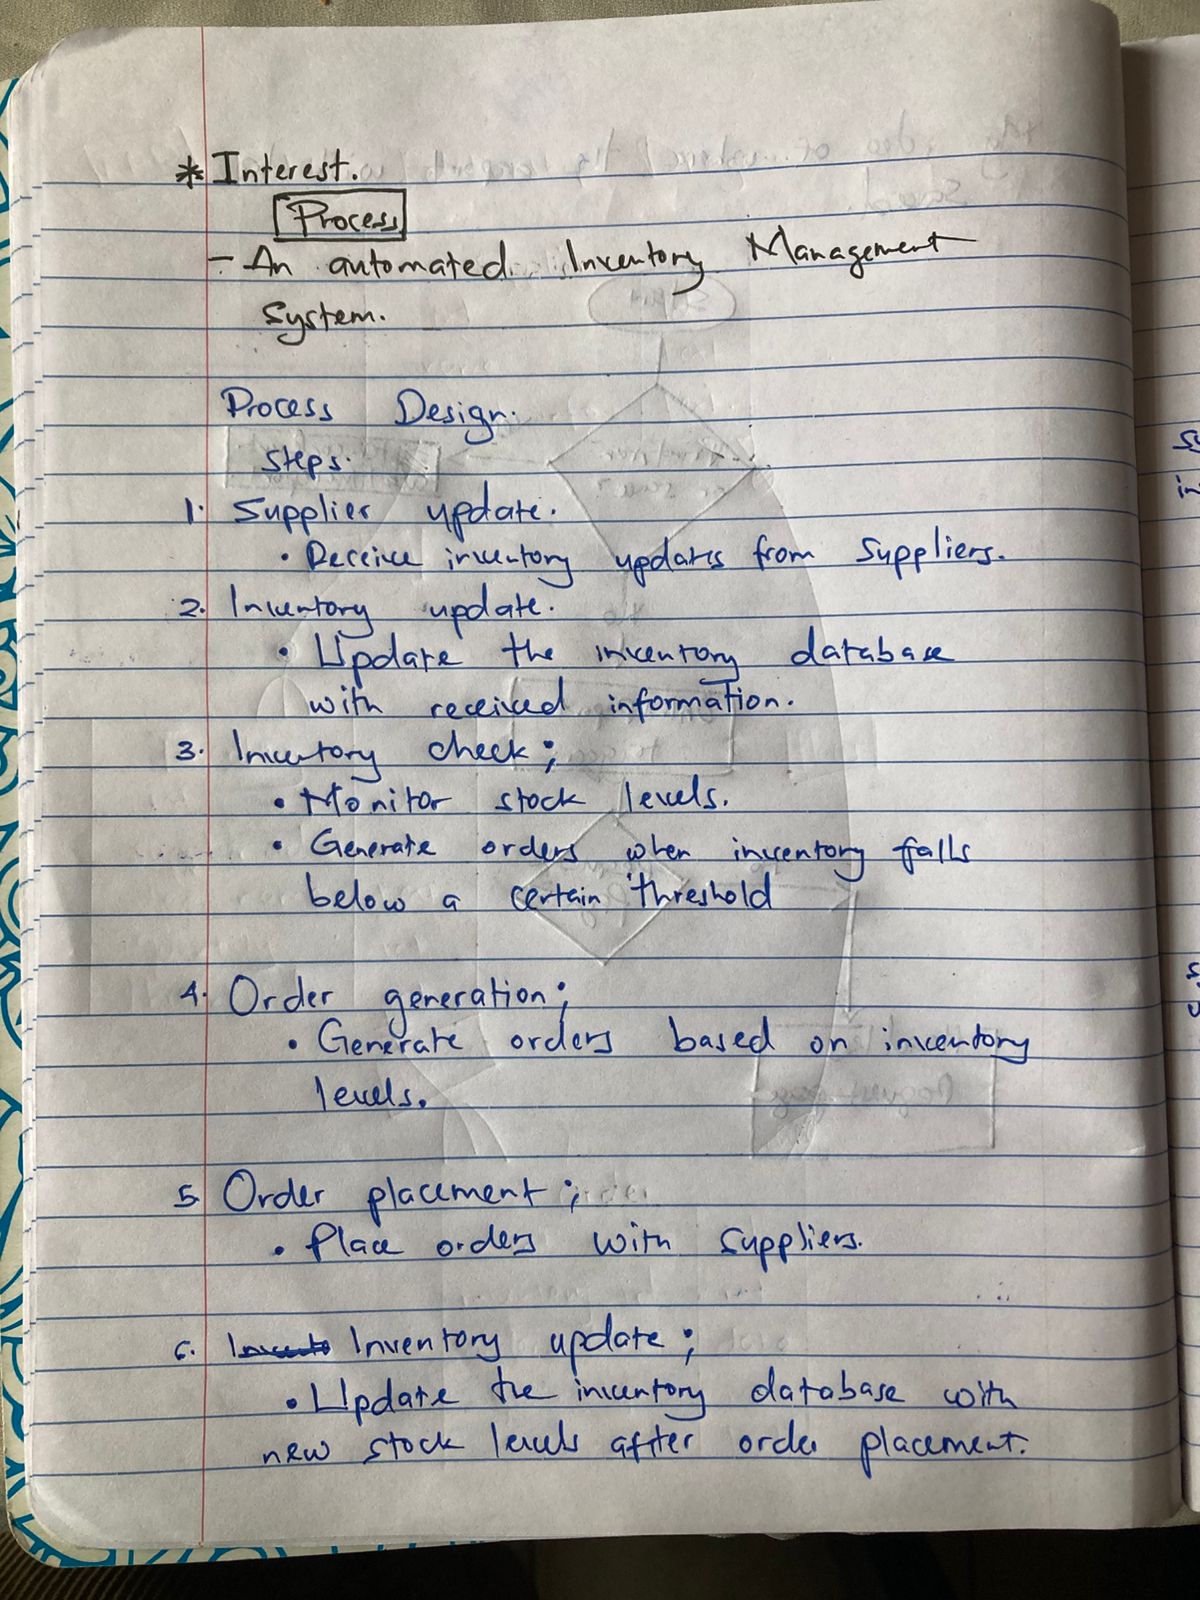 * Interest.
Process
- An automated Inventory Management
System.
Process Design.
Steps.
1. Supplier update.
• Receive inventory updates from Suppliers.
2. Inventory update.
• Update the inventory database
with received information.
3. Inventory check;
• Monitor stock levels.
• Generate orders when inventory falls
below a certain threshold
4. Order generation;
• Generate orders based on inventory
levels.
5. Order placement;
• Place orders with suppliers.
6. Inventory update;
• Update the inventory database with
new stock levels after order placement.